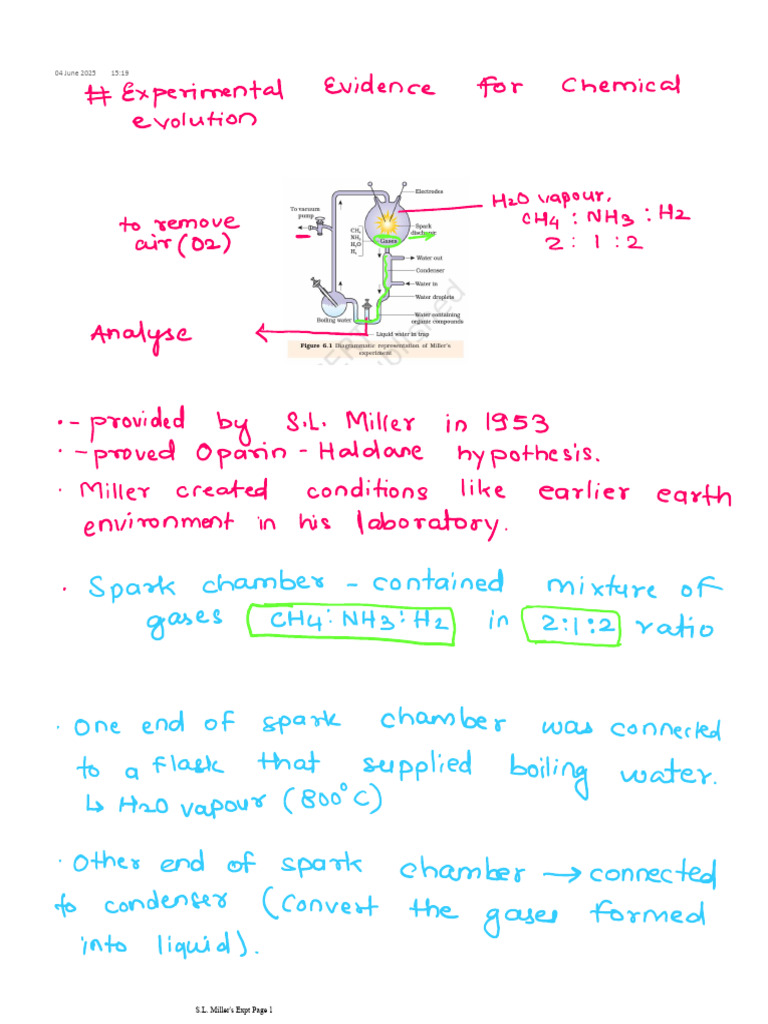 04 June 2025 15:19
# Experimental Evidence for Chemical
evolution
to remove
air (O2)
To vacuum
pump
Electrodes
CH4
NH3
H2O
H2
Gases
Spark
discharge
Water out
Condenser
Water in
Water droplets
Water containing
organic compounds
Boiling water
Liquid water in trap
Figure 6.1 Diagrammatic representation of Miller's
experiment
H2O vapour,
CH4 : NH3 : H2
2 : 1 : 2
Analyse
- provided by S.L. Miller in 1953
- proved Oparin - Haldane hypothesis.
· Miller created conditions like earlier earth
environment in his laboratory.
· Spark chamber - contained mixture of
gases CH4 : NH3 : H2 in 2:1:2 ratio
· One end of spark chamber was connected
to a flask that supplied boiling water.
↳ H2O vapour (800°C)
· Other end of spark chamber → connected
to condenser (convert the gases formed
into liquid).
S.L. Miller's Expt Page 1